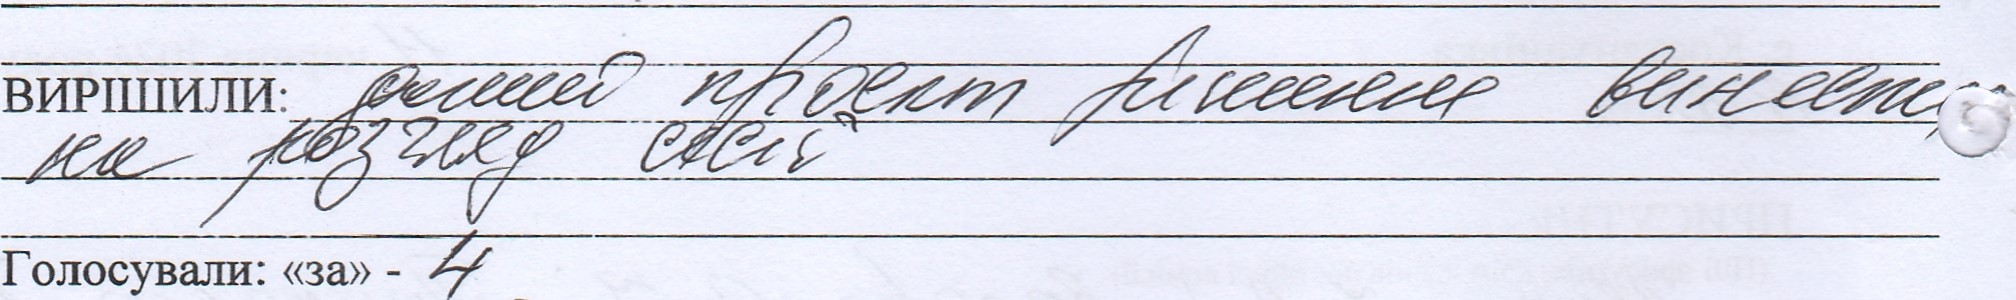 ВИРІШИЛИ: даний проект рішення винести
на розгляд сесії
Голосували: «за» - 4